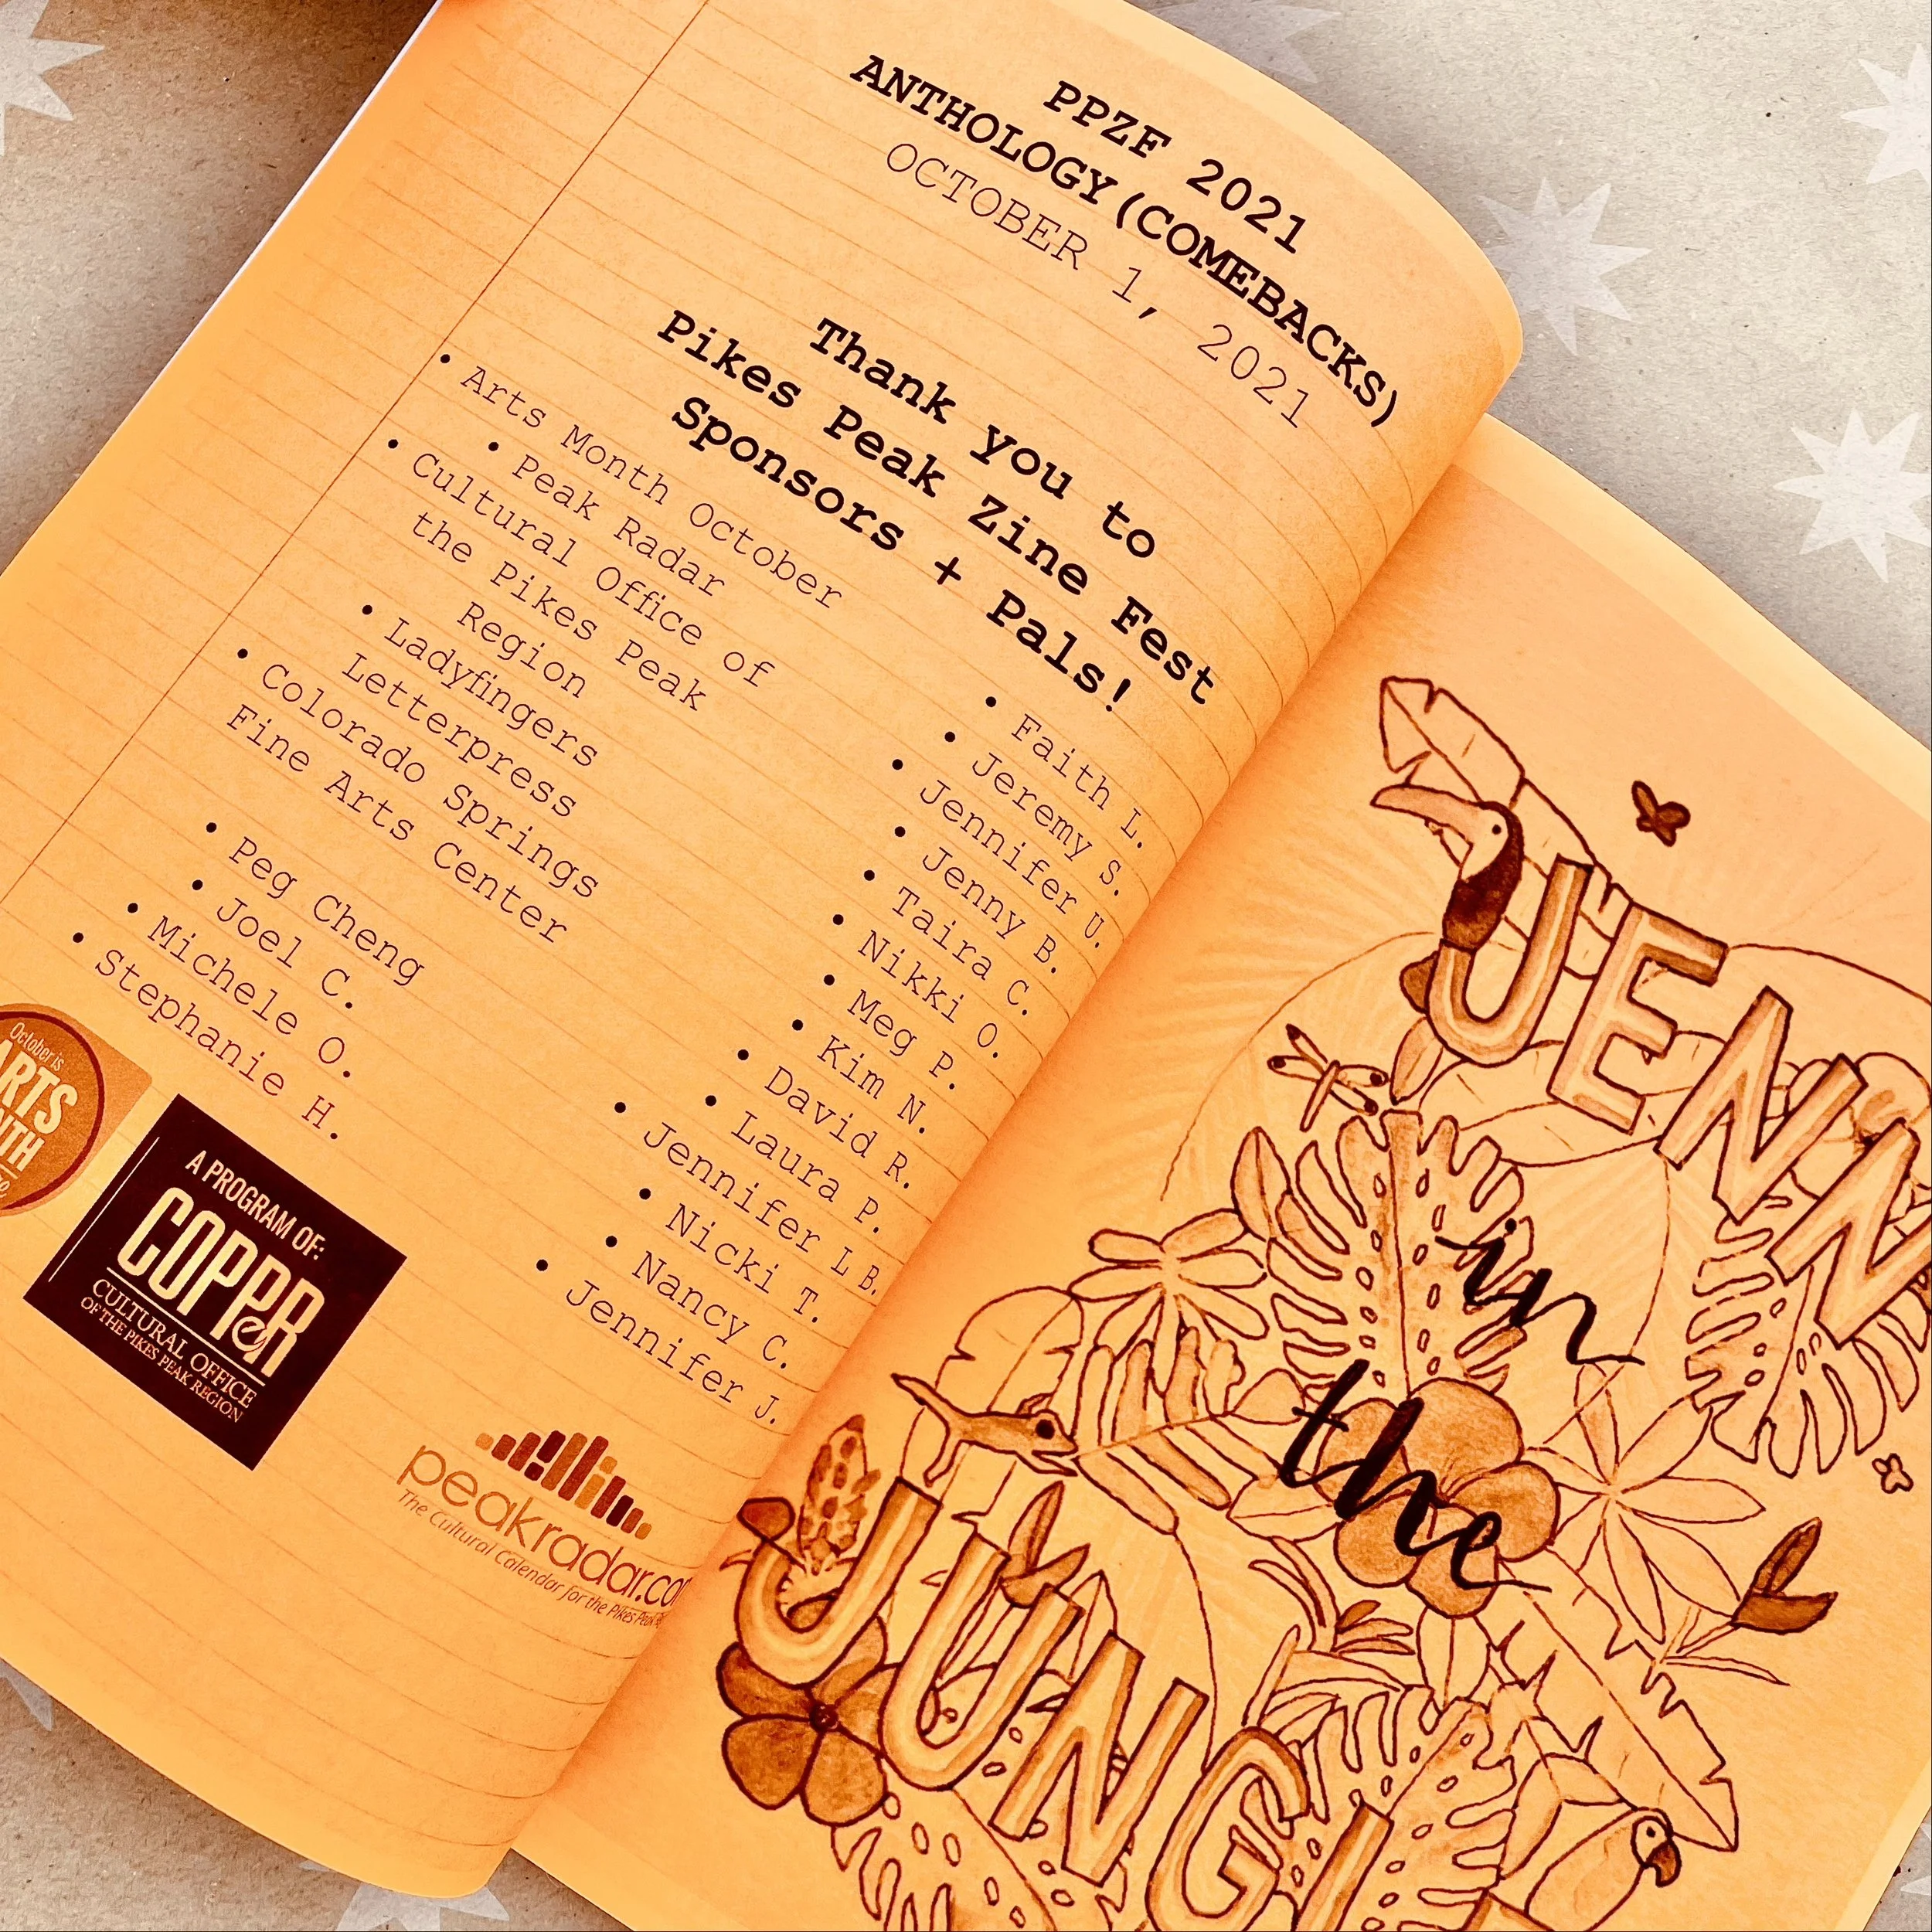 PPZF 2021
ANTHOLOGY (COMEBACKS)
OCTOBER 1, 2021
Thank you to
Pikes Peak Zine Fest
Sponsors + Pals!
• Arts Month October
• Peak Radar
• Cultural Office of
the Pikes Peak
Region
• Ladyfingers
Letterpress
• Colorado Springs
Fine Arts Center
• Peg Cheng
• Joel C.
• Michele O.
• Stephanie H.
• Faith L.
• Jeremy S.
• Jennifer U.
• Jenny B.
• Taira C.
• Nikki O.
• Meg P.
• Kim N.
• David R.
• Laura P.
• Jennifer L B.
• Nicki T.
• Nancy C.
• Jennifer J.
October is
ARTS
A PROGRAM OF:
COPPR
CULTURAL OFFICE
OF THE PIKES PEAK REGION
peakradar.com
The Cultural Calendar for the Pikes Peak
JENN
in
the
JUNGL